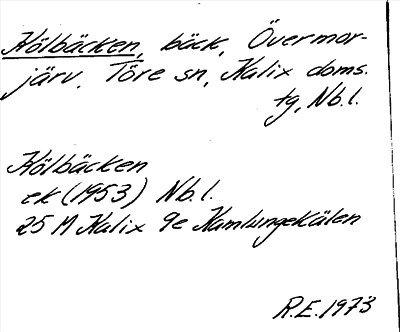 Kölbäcken, bäck, Övermor-
järv, Töre sn, Kalix doms.
tg, Nb.l.
Kölbäcken
ek (1953) Nb.l.
25 M Kalix 9e Kamlungekälen
R.E. 1973